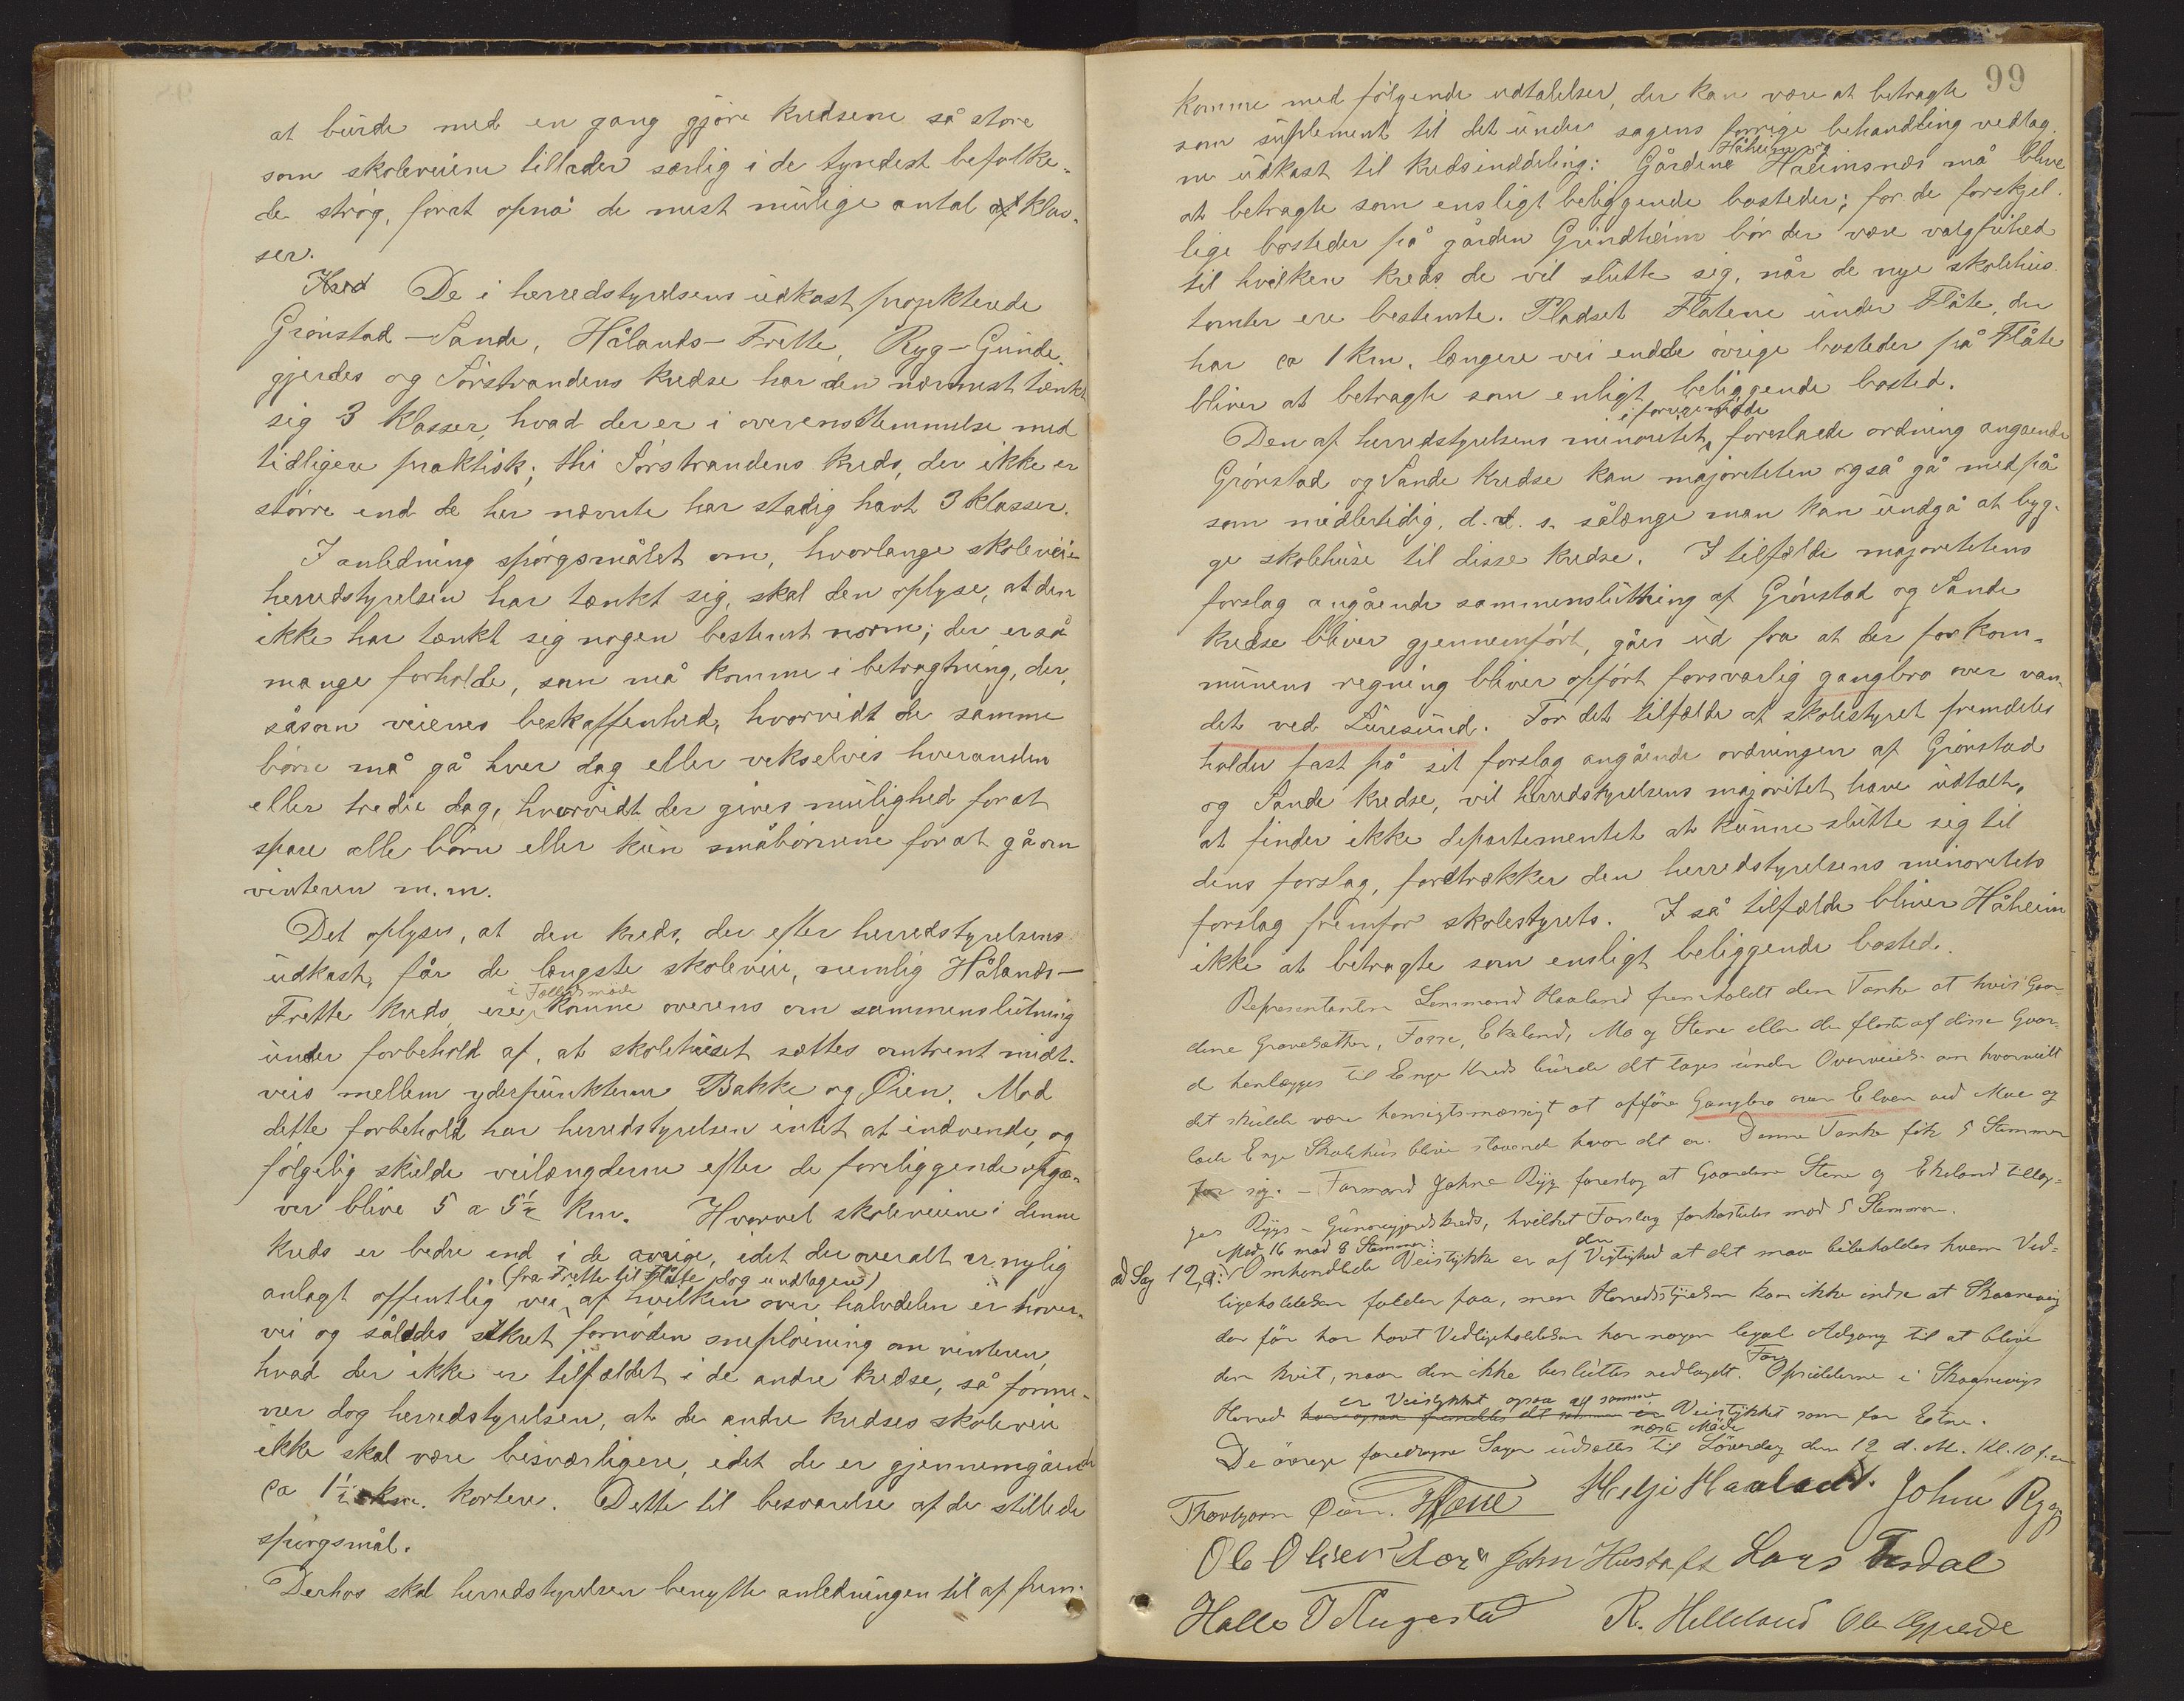 at burde med en gang gjøre kredsene så store
som skoleveiene tillader særlig i de tyndest befolke-
de strøg, forat opnå de mest mulige antal af klas-
ser.
Kred De i herredstyrelsens udkast projekterede
Grønstad-Sande, Hålands-Frette, Ryg-Gunde-
gjerdes og Sørstrandens kredse har den nærmest tænkt
sig 3 klasser, hvad der er i overensstemmelse med
tidligere praktisk; thi Sørstrandens kreds, der ikke er
større end de her nævnte har stadig havt 3 klasser.
I anledning spørgsmålet om, hvorlange skoleveie
herredstyrelsen har tænkt sig, skal den oplyse, at den
ikke har tænkt sig nogen bestemt norm; der er så
mange forholde, som må komme i betragtning, der,
såsom veienes beskaffenhed, hvorvidt de samme
børn må gå hver dag eller vekselvis hveranden
eller tredie dag, hvorvidt der gives mulighed forat
spare alle børn eller kun småbørnene for at gå om
vinteren m.m.
Det oplyses, at den kreds, der efter herredstyrelsens
udkast, får de længste skoleveie, nemlig Hålands-
i Fællesmøde
Frette kreds, ere komne overens om sammenslutning
under forbehold af, at skolehuset sættes omtrent midt-
veis mellem yderpunkterne Bakke og Øien. Mod
dette forbehold har herredstyrelsen intet at indvende, og
følgelig skulde veilængderne efter de foreliggende opga-
ver blive 5 a 5½ km. Hvorvel skoleveiene i denne
kreds er bedre end i de øvrige, idet der overalt er nylig
(fra Frette til Flåte dog undtagen)
anlagt offentlig vei, af hvilken over halvdelen er hoved-
vei og således sikret fornøden snepløining om vinteren,
hvad der ikke er tilfældet i de andre kredse, så forme-
ner dog herredstyrelsen, at de andre kredses skoleveie
ikke skal være besværligere, idet de er gjennemgående
ca 1½ km. kortere. Dette til besvarelse af de stillede
spørgsmål.
Derhos skal herredstyrelsen benytte anledningen til at frem-
99
komme med følgende udtalelser, der kan være at betragte
som suplement til det under sagens forrige behandling vedtag-
Håheim og
ne udkast til kredsinddeling: Gårdene Håeimsnæs må blive
at betragte som ensligt beliggende bosteder; for de forskjel-
lige bosteder på gården Grindheim bør der være valgfrihed
til hvilken kreds de vil slutte sig, når de nye skolehus-
tomter ere bestemte. Pladset Flatene under Flåte, der
har ca 1 km. længere vei end de øvrige bosteder på Flåte
bliver at betragte som enligt beliggende bosted.
i forrige møde
Den af herredstyrelsens minoritet foreslåede ordning angående
Grønstad og Sande kredse kan majoriteten også gå med på
som midlertidig, d. v. s. sålænge man kan undgå at byg-
ge skolehuse til disse kredse. I tilfælde majoritetens
forslag angående sammenslutning af Grønstad og Sande
kredse bliver gjennemført, gåes ud fra at der for kom-
munens regning bliver opført forsvarlig gangbro over van-
det ved Luresund. For det tilfælde at skolestyret fremdeles
holder fast på sit forslag angående ordningen af Grønstad
og Sande kredse, vil herredstyrelsens majoritet have udtalt,
at finder ikke departementet at kunne slutte sig til
dens forslag, foretrækker den herredstyrelsens minoritets
forslag fremfor skolestyrets. I så tilfælde bliver Håheim
ikke at betragte som ensligt beliggende bosted.
Representanten Lensmand Haaland fremholdt den Tanke at hvis Gaar-
dene Gravesæther, Fosse, Ekeland, Mo og Stene eller de fleste af disse Gaar-
de henlægges til Enge Kreds burde det tages under Overveielse om hvorvidt
det skulde være hensigtsmæssigt at opføre Gangbro over Elven ved Moe og
lade Enge Skolehus blive staaende hvor det er. Denne Tanke fik 5 Stemmer
for sig. – Formand Johne Ryg foreslog at Gaardene Stene og Ekeland tillæg-
ges Rygs – Gundegjerdskreds, hvilket Forslag forkastedes mod 5 Stemmer.
Med 16 mod 8 Stemmer:
ad Sag 12, a: Omhandlede Veistykke er af den Vigtighed at det maa beibeholdes hvem Ved-
ligeholdelsen falder paa, men Herredsstyrelsen kan ikke indse at Skaanevig
der før har havt Vedligeholdelsen har nogen legal Adgang til at blive
den kvit, naar den ikke besluttes nedlagdt. For Opsidderne i Skaanevigs
er Veistykket ogsaa af samme
Herred har ogsaa fremdeles det samme er Veistykket som for Etne.
næste Møde
De øvrige foredragne Sager udsættes til Løverdag den 12 d. M. Kl. 10 f.m.
Thorbjørn Øien. Helje Haaland. Johne Rygg
Ole Olsen John Hustoft Lars Tesdal
Halle T Augestad R. Helleland Ole Gjerde